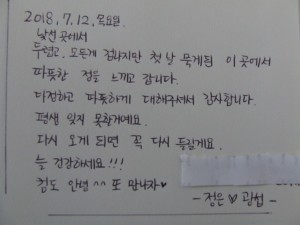 2018. 7. 12. 목요일.
낯선 곳에서
두렵고, 모든게 겁나지만 첫 날 묵게된 이 곳에서
따뜻한 정을 느끼고 갑니다.
다정하고 따뜻하게 대해주셔서 감사합니다.
평생 잊지 못할거예요.
다시 오게 되면 꼭 다시 들릴게요.
늘 건강하세요!!!
침도 안녕 ^^ 또 만나자♥
- 정은 ♥ 광섭 -